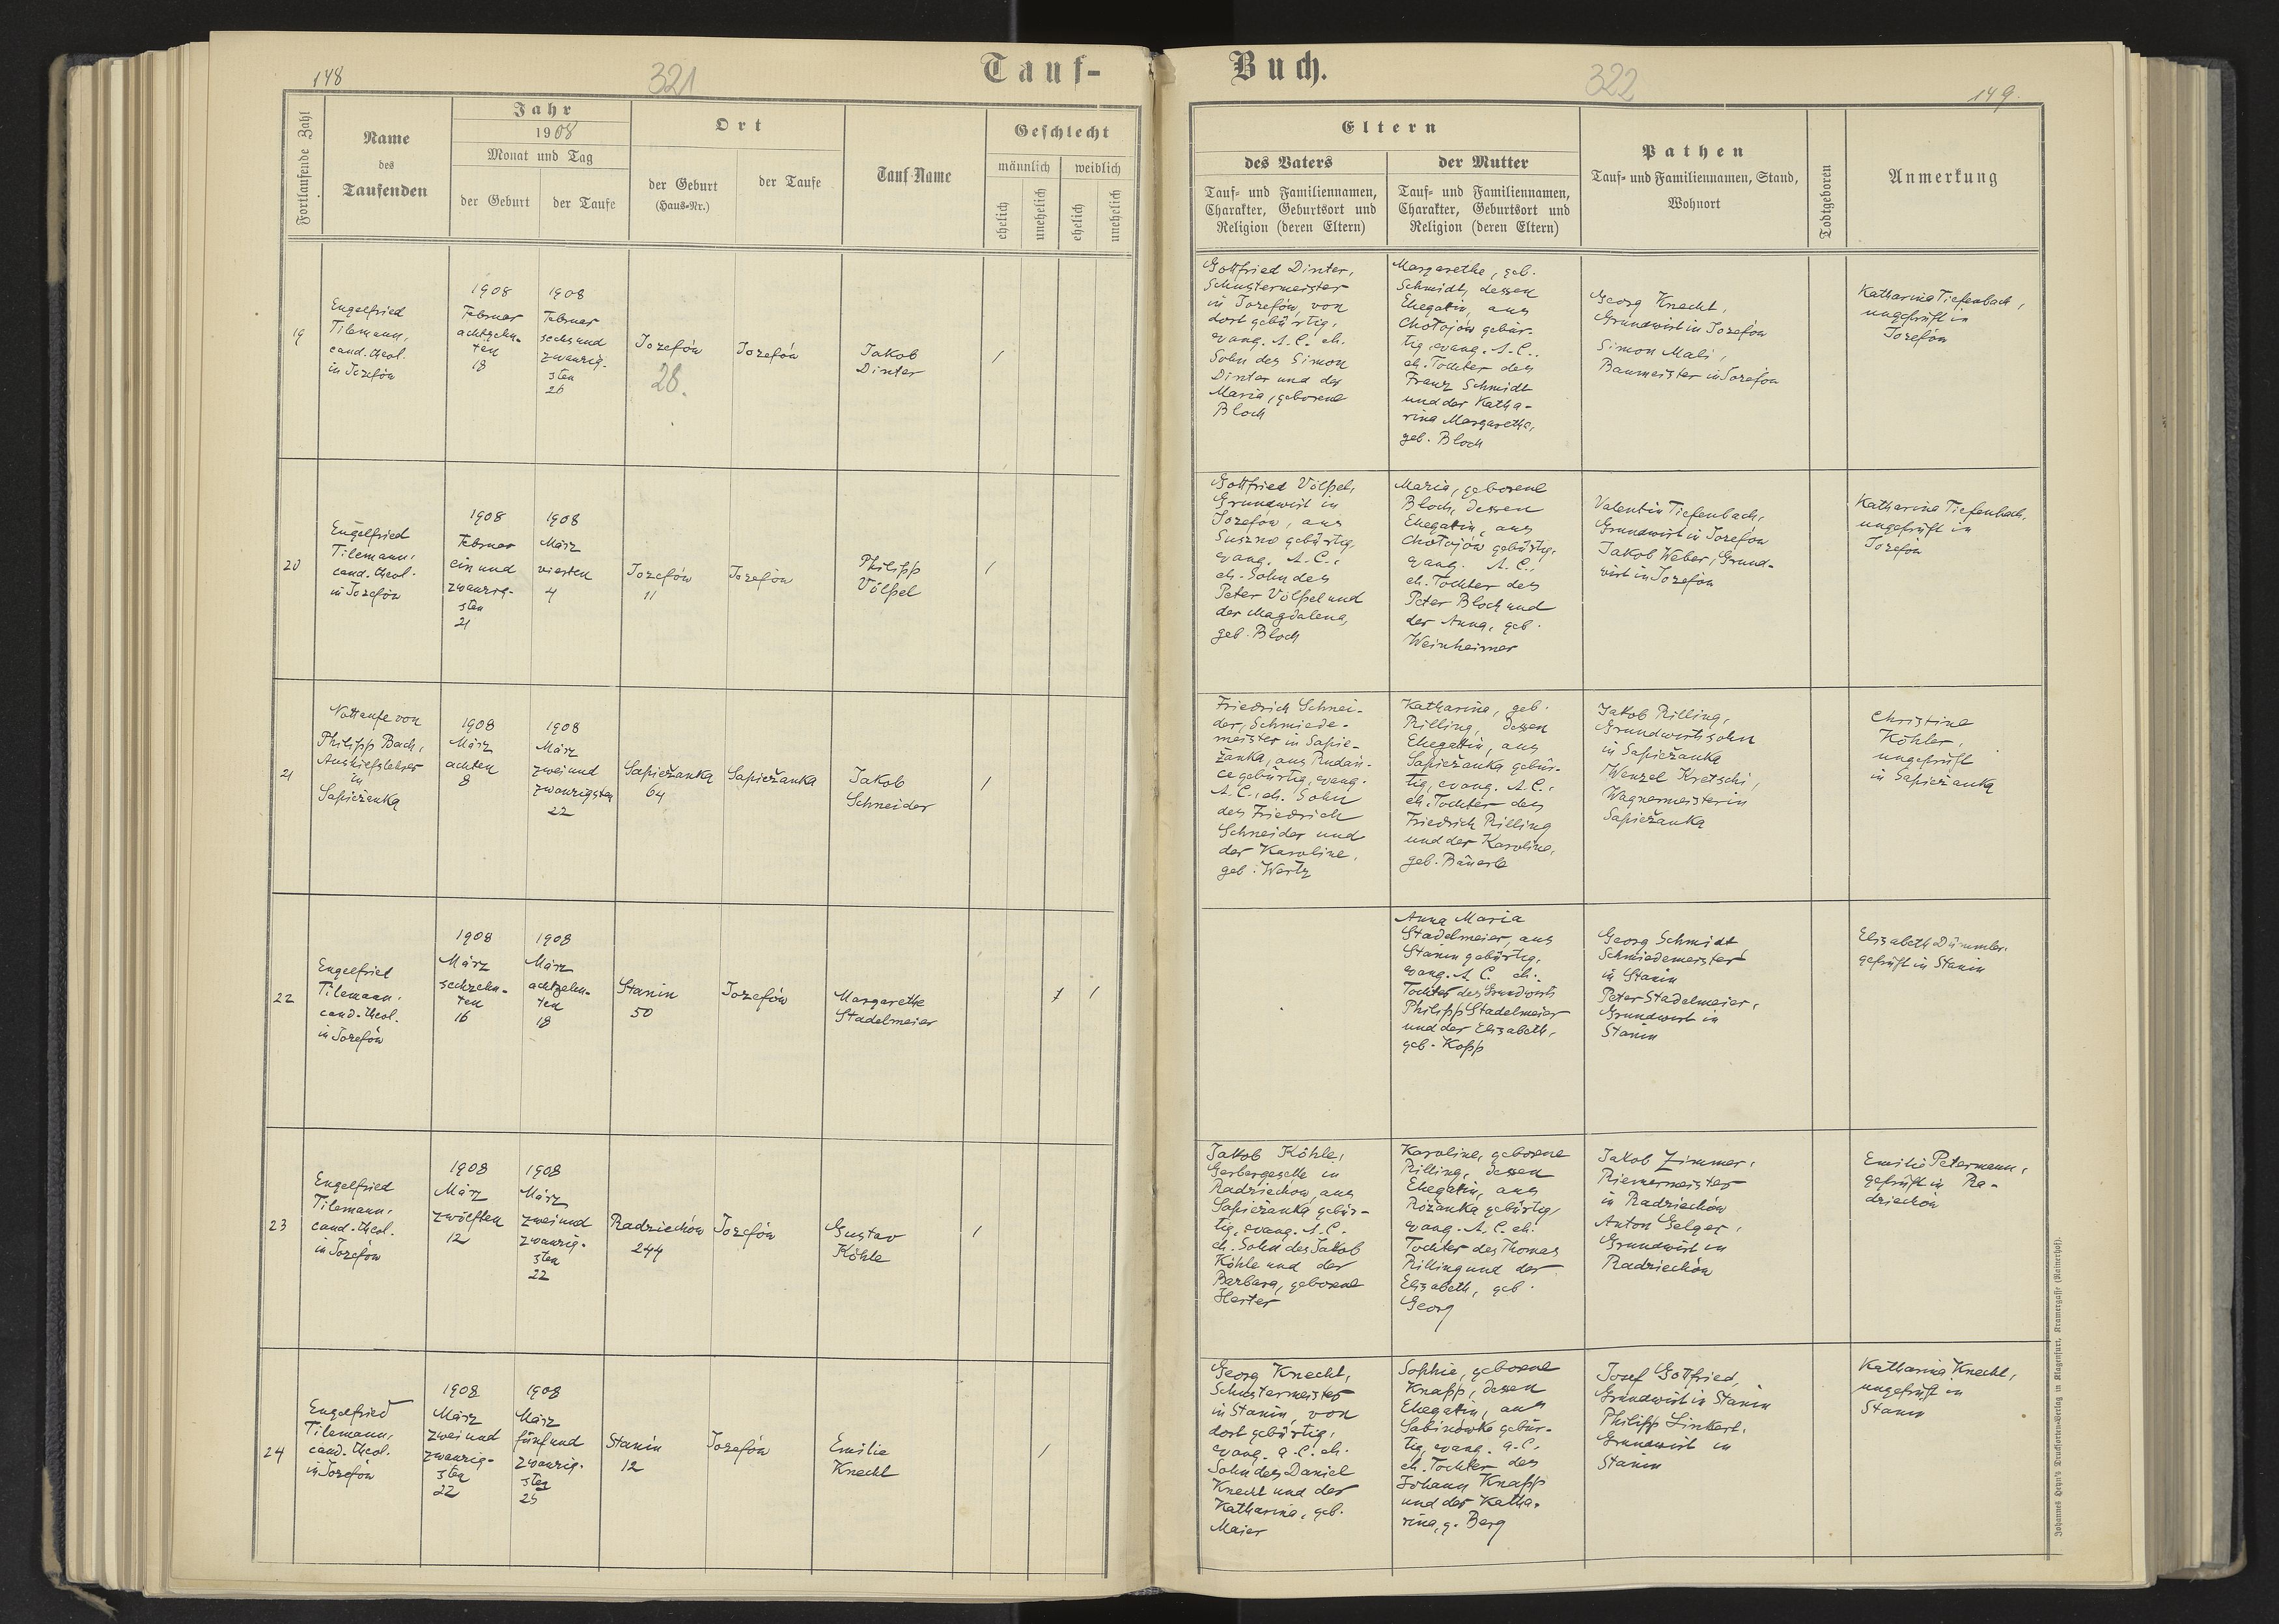 148
321
Tauf-
Fortlaufende Zahl
Name
des
Taufenden
Jahr
1908
Monat und Tag
der Geburt
der Taufe
Ort
der Geburt
(Haus-Nr.)
der Taufe
Tauf-Name
Geschlecht
männlich
weiblich
ehelich
unehelich
ehelich
unehelich
19
Engelfried
Tilemann,
cand. theol.
in Josefów
1908
Februar
achtzehn-
ten
18
1908
Februar
sechsund
zwanzig-
sten
26
Jozefów
28.
Jozefów
Jakob
Dinter
/
20
Engelfried
Tilemann,
cand. theol.
in Jozefów
1908
Februar
ein und
zwanzig-
sten
21
1908
März
vierten
4
Jozefów
11
Jozefów
Philipp
Völpel
/
21
Nottaufe von
Philipp Bach,
Aushilfslehrer
in
Sapieżanka
1908
März
achten
8
1908
März
zwei und
zwanzigsten
22
Sapieżanka
64
Sapieżanka
Jakob
Schneider
/
22
Engelfried
Tilemann,
cand. theol.
in Jozefów
1908
März
sechzehn-
ten
16
1908
März
achtzehn-
ten
18
Stanin
50
Jozefów
Margarethe
Stadelmeier
/
23
Engelfried
Tilemann,
cand. theol.
in Jozefów
1908
März
zwölften
12
1908
März
zwei und
zwanzig-
sten
22
Radziechów
244
Jozefów
Gustav
Köhle
/
24
Engelfried
Tilemann,
cand. theol.
in Jozefów
1908
März
zwei und
zwanzig-
sten
22
1908
März
fünf und
zwanzig-
sten
25
Stanin
12
Jozefów
Emilie
Knecht
/
Buch.
322
149.
Eltern
des Vaters
Tauf- und Familiennamen,
Charakter, Geburtsort und
Religion (deren Eltern)
der Mutter
Tauf- und Familiennamen,
Charakter, Geburtsort und
Religion (deren Eltern)
Pathen
Tauf- und Familiennamen, Stand,
Wohnort
Todtgeboren
Anmerkung
Gottfried Dinter,
Schustermeister
in Jozefów, von
dort gebürtig,
evang. A.C. eh.
Sohn des Simon
Dinter und der
Maria, geborene
Bloch
Margarethe, geb.
Schmidt, dessen
Ehegatin, aus
Chołojów gebür-
tig, evang. A.C.,
eh. Tochter des
Franz Schmidt
und der Katha-
rina Margarethe,
geb. Bloch
Georg Knecht,
Grundwirt in Jozefów
Simon Mali,
Baumeister in Jozefów
Katharina Tiefenbach,
ungeprüft in
Jozefów
Gottfried Völpel,
Grundwirt in
Jozefów, aus
Suszno gebürtig,
evang. A.C.,
eh. Sohn des
Peter Völpel und
der Magdalena,
geb. Bloch
Maria, geborene
Bloch, dessen
Ehegatin, aus
Chołojów gebürtig,
evang. A.C.,
eh. Tochter des
Peter Bloch und
der Anna, geb.
Weinheimer
Valentin Tiefenbach,
Grundwirt in Jozefów
Jakob Weber, Grund-
wirt in Jozefów
Katharina Tiefenbach,
ungeprüft in
Jozefów
Friedrich Schnei-
der, Schmiede-
meister in Sapie-
żanka, aus Rudań-
ce gebürtig, evang.
A.C., eh. Sohn
des Friedrich
Schneider und
der Karoline,
geb. Wertz
Katharina, geb.
Rilling, dessen
Ehegattin, aus
Sapieżanka gebür-
tig, evang. A.C.,
eh. Tochter des
Friedrich Rilling
und der Karoline,
geb. Bäuerle
Jakob Rilling,
Grundwirtssohn
in Sapieżanka
Wenzel Kretschi,
Wagnermeister in
Sapieżanka
Christine
Köhler,
ungeprüft
in Sapieżanka
Anna Maria
Stadelmeier, aus
Stanin gebürtig,
evang. A.C. eh.
Tochter des Grundwirts
Philipp Stadelmeier
und der Elisabeth,
geb. Kopp
Georg Schmidt
Schmiedemeister
in Stanin
Peter Stadelmeier,
Grundwirt in
Stanin
Elisabeth Dümmler,
geprüft in Stanin
Jakob Köhle,
Gerbergeselle in
Radziechów, aus
Sapieżanka gebür-
tig, evang. A.C.
eh. Sohn des Jakob
Köhle und der
Barbara, geborene
Herter
Karoline, geborene
Rilling, dessen
Ehegatin, aus
Różanka gebürtig,
evang. A.C. eh.
Tochter des Thomas
Rilling und der
Elisabeth, geb.
Georg
Jakob Zimmer,
Riemermeister
in Radziechów
Anton Gelger,
Grundwirt in
Radziechów
Emilie Petermann,
geprüft in Ra-
dziechów
Georg Knecht,
Schustermeister
in Stanin, von
dort gebürtig,
evang. A.C. eh.
Sohn des Daniel
Knecht und der
Katharina, geb.
Maier
Sophie, geborene
Knapp, dessen
Ehegatin, aus
Sabinówka gebür-
tig, evang. A.C.
eh. Tochter des
Johann Knapp
und der Katha-
rina, g. Berg
Josef Gottfried,
Grundwirt in Stanin
Philipp Linkert,
Grundwirt in
Stanin
Katharina Knecht,
ungeprüft in
Stanin
Johannes Heyn's Drucksorten-Verlag in Klagenfurt, Kramergasse (Rainerhof).